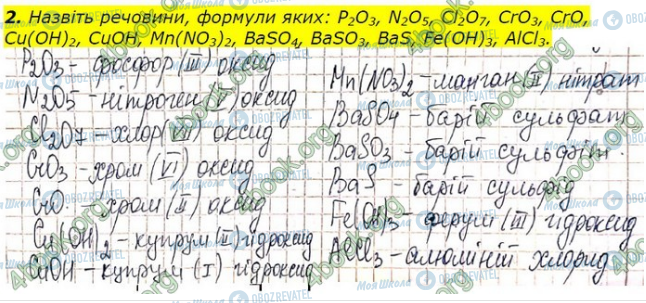 2. Назвіть речовини, формули яких: P₂O₃, N₂O₅, Cl₂O₇, CrO₃, CrO,
Cu(OH)₂, CuOH, Mn(NO₃)₂, BaSO₄, BaSO₃, BaS, Fe(OH)₃, AlCl₃.
P₂O₃ – фосфор (III) оксид
N₂O5 – нітроген (V) оксид
Cl₂O7 – хлор (VII) оксид
CrO₃ – хром (VI) оксид
CrO – хром (II) оксид
Cu(OH)₂ – купрум (II) гідроксид
CuOH – купрум (I) гідроксид
Mn(NO₃)₂ – манган (II) нітрат
BaSO4 – барій сульфат
BaSO₃ – барій сульфіт.
BaS – барій сульфід
Fe(OH)₃ – ферум (III) гідроксид
AlCl₃ – алюміній хлорид